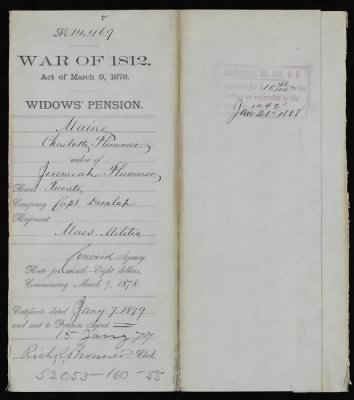 No. 14,469
WAR OF 1812.
Act of March 9, 1878.
WIDOWS' PENSION.
Maine
Charlotte Plummer
widow of
Jeremiah Plummer
Rank Private
Company Capt. Dunlap
Regiment
Mass. Militia
Concord Agency.
Rate per month—Eight dollars,
Commencing March 9, 1878.
Certificate dated Jany 7. 1879
and sent to Pension Agent
15 Jany 79
Clerk.
52055-160-55
Jan. 21st 1888